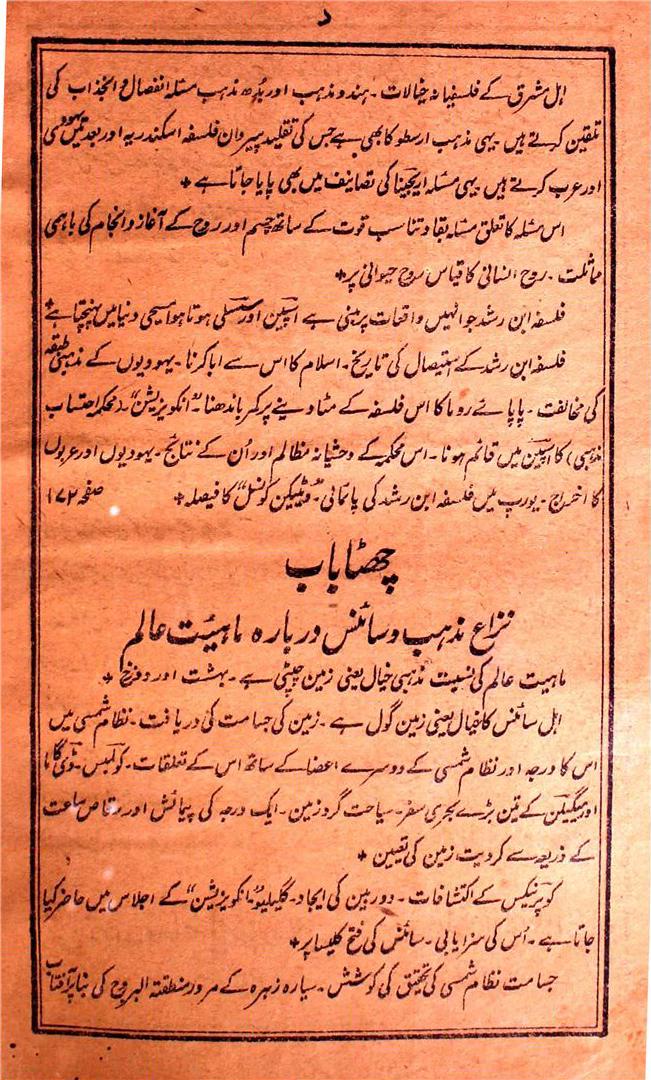 د
اہل مشرق کے فلسفیانہ خیالات ۔ ہندو مذہب اور بدھ مذہب مسئلہ انفصال و انجذاب کی
تلقین کرتے ہیں ۔ یہی مذہب ارسطو کا بھی ہے جس کی تقلید پیروان فلسفہ اسکندریہ اور بعد میں یہودی
اور عرب کرتے ہیں ۔ یہی مسئلہ اریجینا کی تصانیف میں بھی پایا جاتا ہے *
اس مسئلہ کا تعلق مسئلہ بقا و تناسب قوت کے ساتھ جسم اور روح کے آغاز و انجام کی باہمی
مماثلت ۔ روح انسانی کا قیاس روح حیوانی پر *
فلسفہ ابن رشد جو انہیں واقعات پر مبنی ہے اسپین اور سسلی ہوتا ہوا مسیحی دنیا میں پہنچتا ہے *
فلسفہ ابن رشد کے استیصال کی تاریخ ۔ اسلام کا اس سے ابا کرنا ۔ یہودیوں کے مذہبی طبقہ
کی مخالفت ۔ پاپائے روما کا اس فلسفہ کے مٹا دینے پر کمر باندھنا ۔ "انکویزیشن" ۔ (محکمہ احتساب
مذہبی) کا اسپین میں قائم ہونا ۔ اس محکمہ کے وحشیانہ مظالم اور اُن کے نتائج ۔ یہودیوں اور عربوں
کا اخراج ۔ یورپ میں فلسفہ ابن رشد کی پائمالی ۔ "وٹیکن کونسل" کا فیصلہ * صفحہ ۱۷۲
چھٹا باب
نزاع مذہب و سائنس دربارہ ماہیت عالم
ماہیت عالم کی نسبت مذہبی خیال یعنی زمین چپٹی ہے ۔ بہشت اور دوزخ *
اہل سائنس کا خیال یعنی زمین گول ہے ۔ زمین کی جسامت کی دریافت ۔ نظام شمسی میں
اس کا درجہ اور نظام شمسی کے دوسرے اعضا کے ساتھ اس کے تعلقات ۔ کولمبس ۔ ڈی گاما
اور میگیلن کے تین بڑے بحری سفر ۔ سیاحت گرد زمین ۔ ایک درجہ کی پیمائش اور رقاص ساعت
کے ذریعہ سے کرویت زمین کی تعیین *
کوپرنیکس کے اکتشافات ۔ دوربین کی ایجاد ۔ گلیلیو "انکویزیشن" کے اجلاس میں حاضر کیا
جاتا ہے ۔ اُس کی سزایابی ۔ سائنس کی فتح کلیسا پر *
جسامت نظام شمسی کی تحقیق کی کوشش ۔ سیارہ زہرہ کے مرور منطقۃ البروج کی بنا پر آفتاب